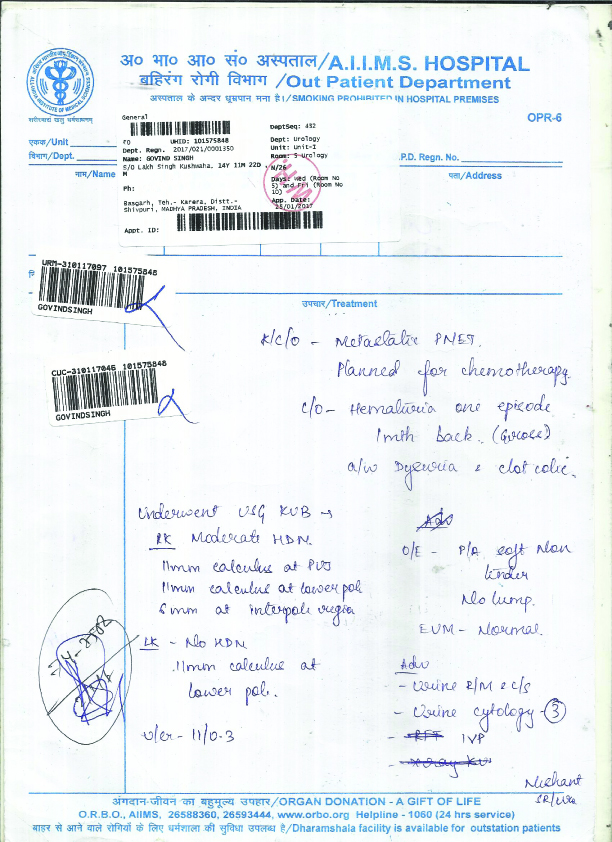 अ० भा० आ० सं० अस्पताल/A.I.I.M.S. HOSPITAL
बहिरंग रोगी विभाग /Out Patient Department
अस्पताल के अन्दर धूम्रपान मना है।/SMOKING PROHIBITED IN HOSPITAL PREMISES
OPR-6
एकक/Unit
विभाग/Dept.
नाम/Name
.P.D. Regn. No.
पता/Address
General
DeptSeq: 432
FO UHID: 101575848
Dept. Regn. 2017/021/0001350
Name: GOVIND SINGH
S/O Lakh Singh Kushwaha, 14Y 11M 22D
M
Ph:
Basgarh, Teh.- Karera, Distt.-
Shivpuri, MADHYA PRADESH, INDIA
Appt. ID:
Dept: Urology
Unit: Unit-I
Room: 5 Urology
N/26
Days: Wed (Room No
5) and Fri (Room No
10)
App. Date:
25/01/2017
URM-310117097 101575848
GOVINDSINGH
CUC-310117046 101575848
GOVINDSINGH
उपचार/Treatment
K/C/O - Metastatic PNET.
Planned for chemotherapy.
C/O - Hematuria one episode
1mth back. (Gross)
a/w Dysuria & clot colic.
Underwent USG KUB →
RK Moderate HDN.
11mm calculus at PUJ
11mm calculus at lower pole
6mm at interpole region
LK - No HDN
11mm calculus at
lower pole.
U/Cr - 11/0.3
Adv
O/E - P/A soft Non
tender
No lump.
EUM - Normal.
Adv
- Urine R/M & C/S
- Urine cytology - 3
- RFT IVP
- Xray KUB
Nishant
SR/Uro
अंगदान-जीवन का बहुमूल्य उपहार/ORGAN DONATION - A GIFT OF LIFE
O.R.B.O., AIIMS, 26588360, 26593444, www.orbo.org Helpline - 1060 (24 hrs service)
बाहर से आने वाले रोगियों के लिए धर्मशाला की सुविधा उपलब्ध है/Dharamshala facility is available for outstation patients